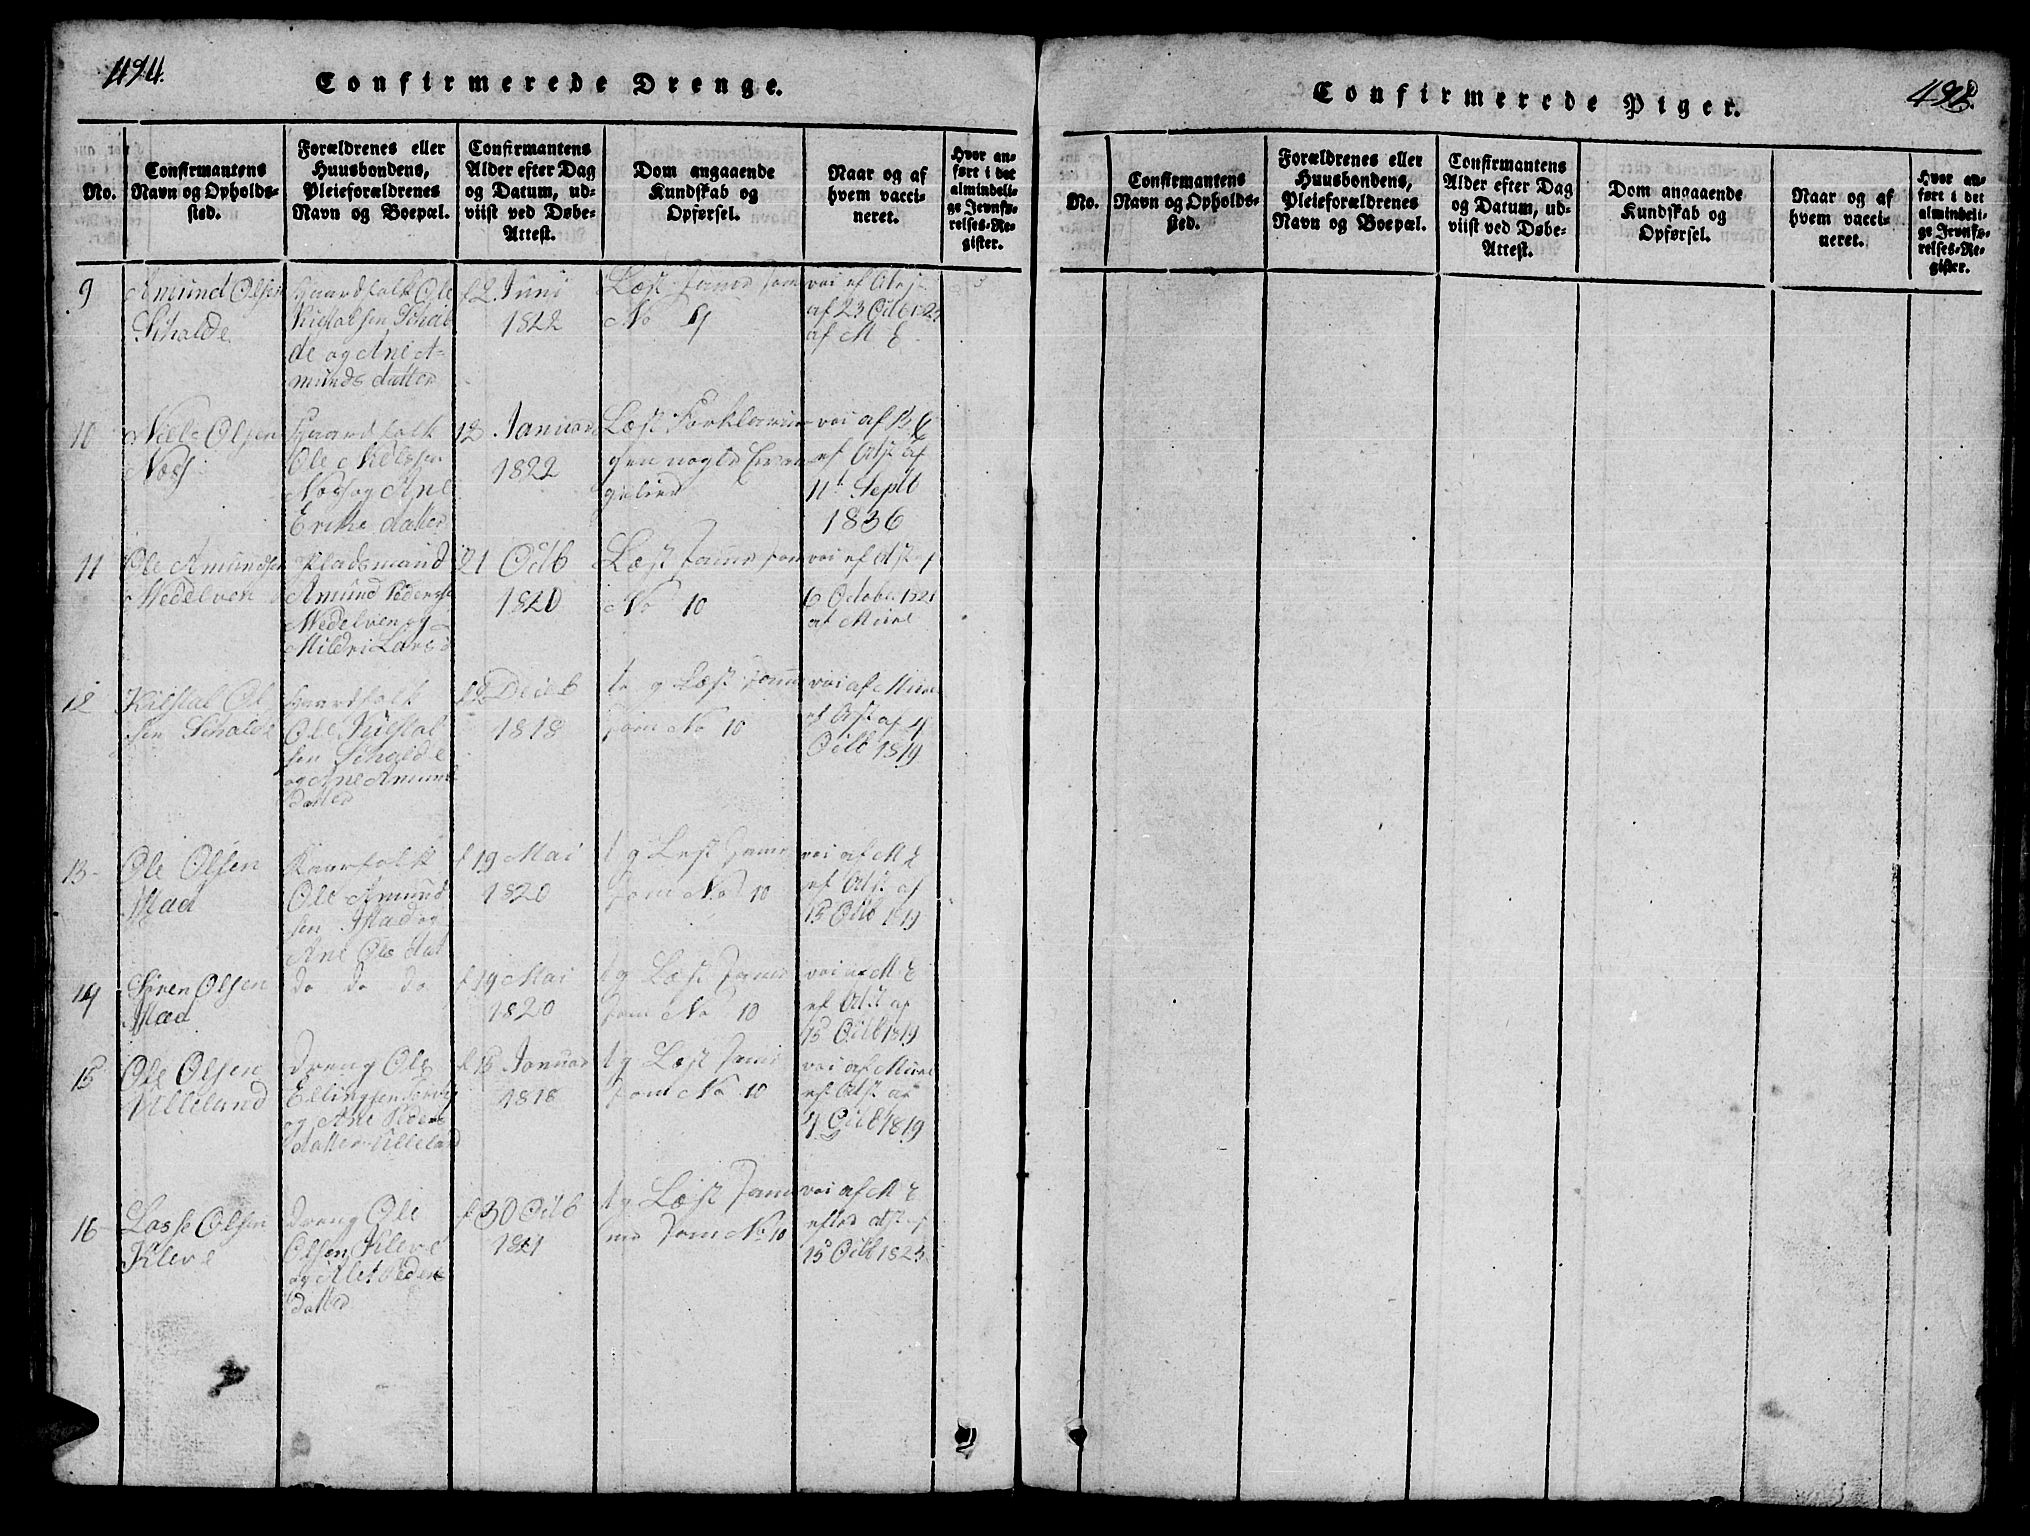 494.
Confirmerede Drenge.
No.
Confirmantens
Navn og Opholds-
sted.
Forældrenes eller
Huusbondens,
Pleieforældrenes
Navn og Boepæl.
Confirmantens
Alder efter Dag
og Datum, ud-
viist ved Døbe-
Attest.
Dom angaaende
Kundskab og
Opførsel.
Naar og af
hvem vacci-
neret.
Hvor an-
ført i det
almindeli-
ge Jevnfø-
relses-Re-
gister.
9
Amund Olsen
Schalde
Gaardfolk Ole
Kielstalsen Schal
de og Ane A-
munds datter
f 2 Juni
1822
Læst samt som
No 4
vai ef Atest
af 23 Octbr 23
af M E
10
Niels Olsen
Næss
Gaardfolk
Ole Nielssen
Næss og Ane
Eriks datter
12 Januar
1822
Læst Forklarin
gen nogle Evan
gelier
vai af B E
ef Atst af
11t Septb
1836
11
Ole Amundsen
Medelven
Pladsmand
Amund Peders
Medelven og
Mildri Lars d
21 Octb
1820
Læst samt som
No 10
vai ef Atst af
6 October 1821
af Miire
12
Kilstal Ol
sen Schalde
Gaardfolk
Ole Kielstal
sen Schalde
og Ane Amunds
datter
f 2 Deceb
1818
tg Læst samt
som No 10
vai af Miire
ef Atst af 4
Octb 1819
13
Ole Olsen
Mad
Kaarfolk
Ole Amund
sen Mad og
Ane Ols dat
f 19 Mai
1820
tg Læst samt
som No 10
vai af M E
ef Atst af
15 Octb 1819
14
Søren Olsen
Mad
do do do
f 19 Mai
1820
tg Læst samt
som No 10
vai af M E
ef Atst af
15 Octb 1819
15
Ole Olsen
Ulleland
Dreng Ole
Ellingsen
og Ane Peders
datter Ulleland
f 15 Januar
1818
tg Læst samt
som No 10
vai af Miire
ef Atst af
4 Octb 1819
16
Lasse Olsen
Kleve
Dreng Ole
Olsen Kleve
og Alet Peders
datter
f 30 Octb
1821
tg Læst samt
som No 10
vai af M E
efter Atst af
15 Octb 1823
Confirmerede Piger.
495.
No.
Confirmantens
Navn og Opholds-
sted.
Forældrenes eller
Huusbondens,
Pleieforældrenes
Navn og Boepæl.
Confirmantens
Alder efter Dag
og Datum, ud-
viist ved Døbe-
Attest.
Dom angaaende
Kundskab og
Opførsel.
Naar og af
hvem vacci-
neret.
Hvor an-
ført i det
almindeli-
ge Jevnfø-
relses-Re-
gister.